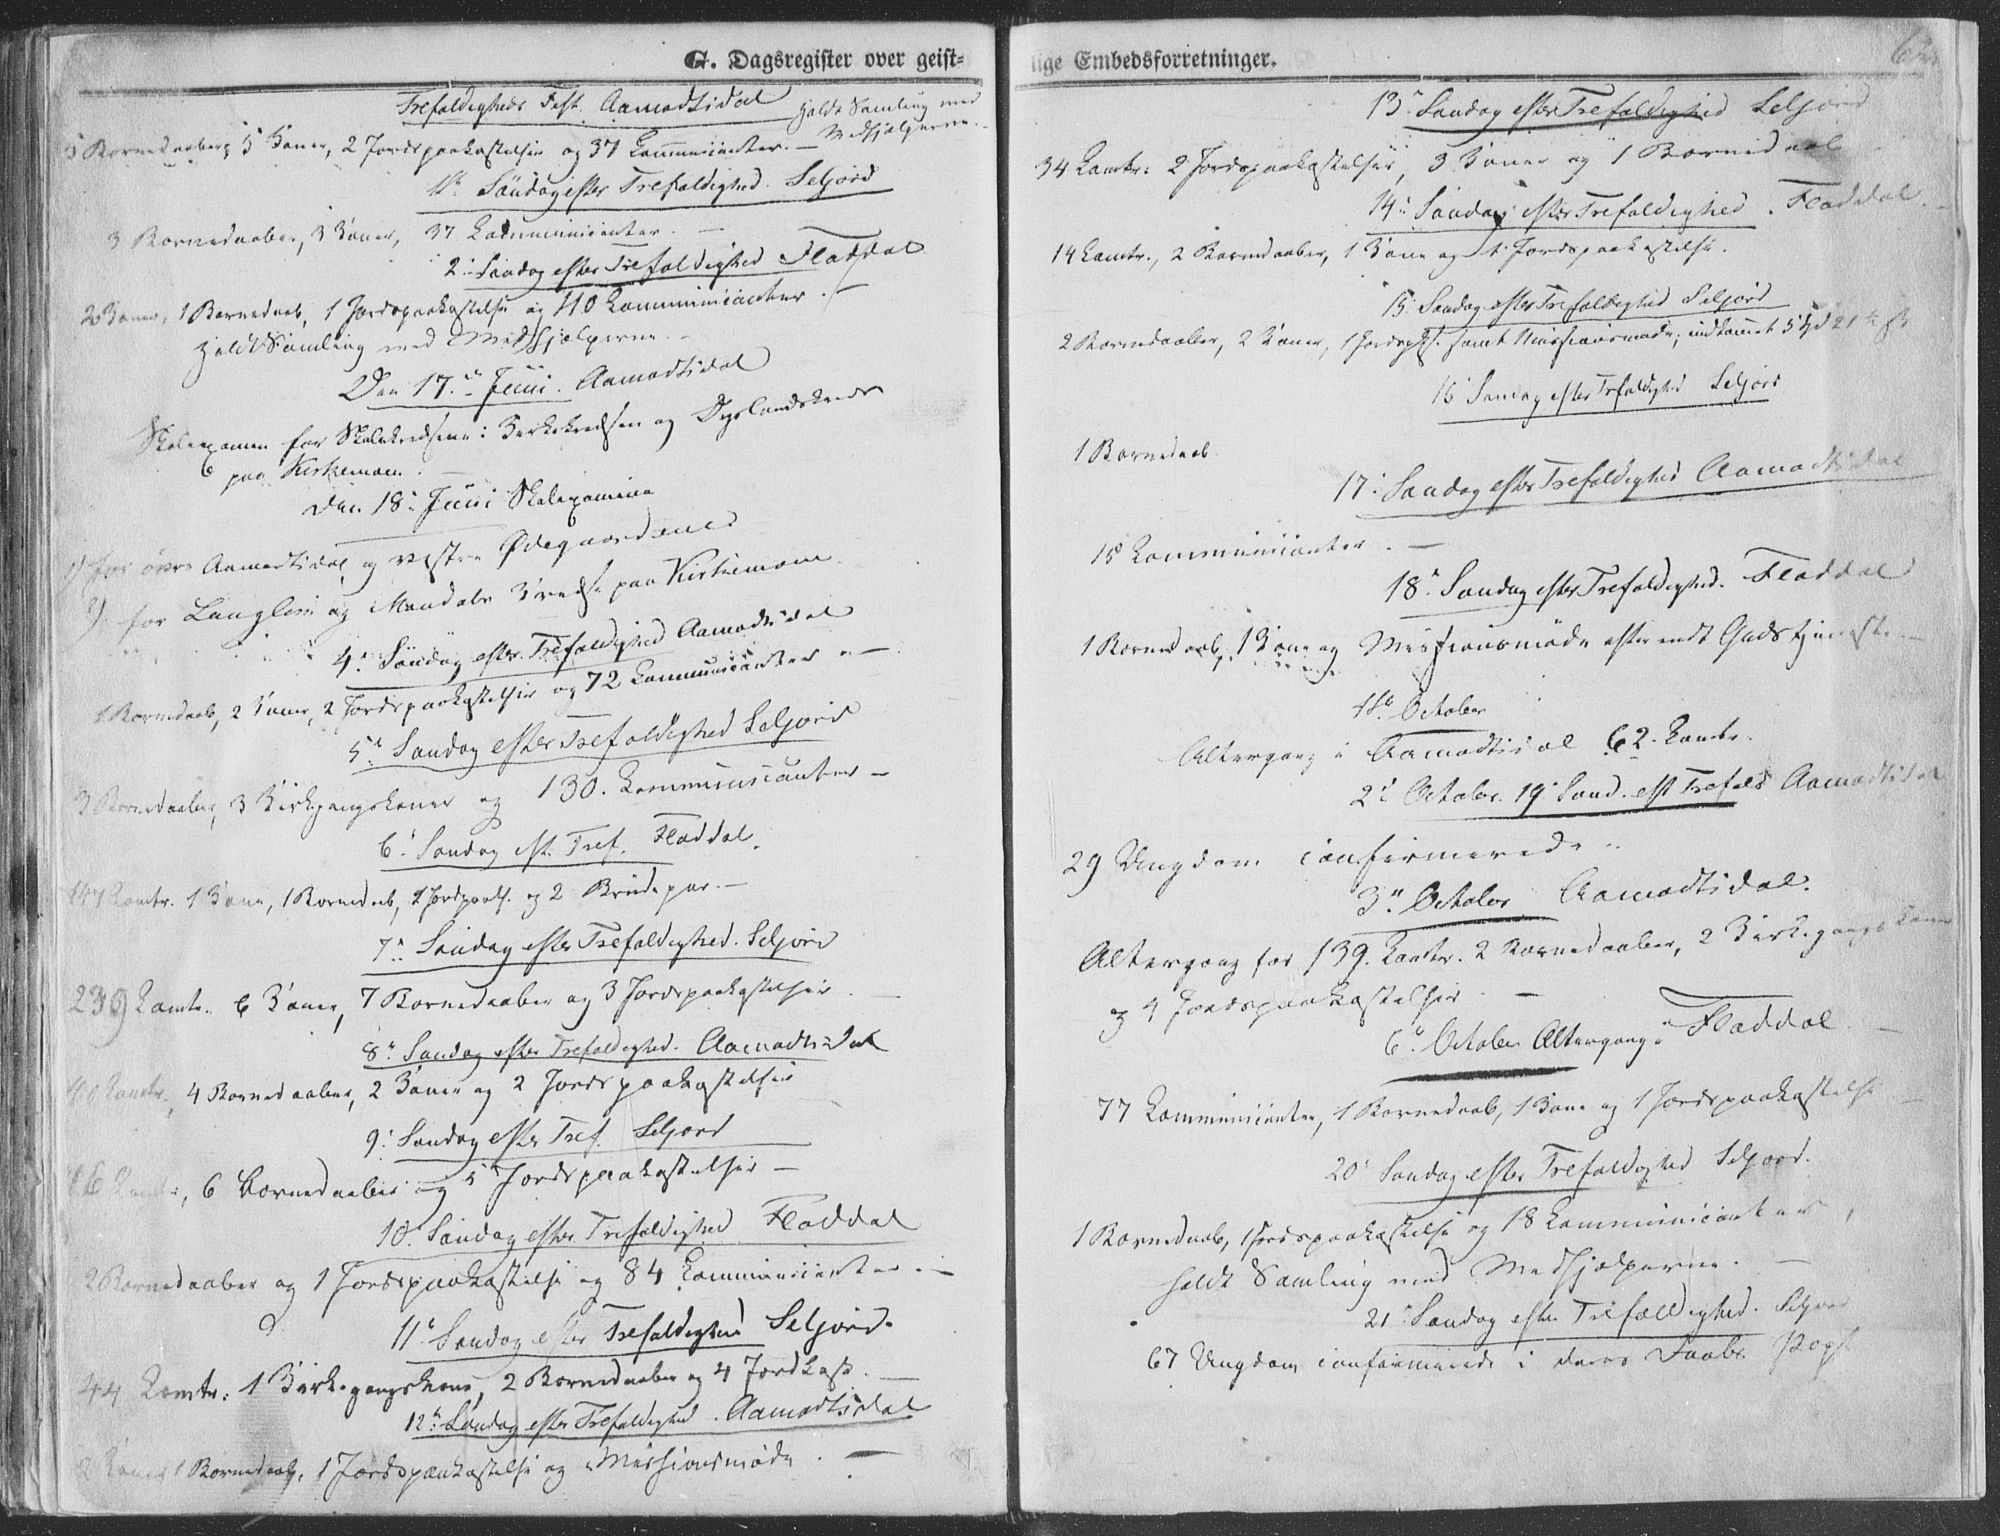 G. Dagsregister over geist-
Trefoldigheds Fest. Aamodtsdal Holdt Samling med
Medhjælperne.
5 Barnedaaber, 5 Koner, 2 Jordspaakastelser og 37 Communicanter. —
1ste Söndag efter Trefoldighed. Seljord
3 Barnedaaber, 3 Koner, 37 Communicanter. —
2. Söndag efter Trefoldighed Fladdal
2 Koner, 1 Barnedaab, 1 Jordspaakastelse og 40 Communicanter. —
Holdt Samling med Medhjælperne. —
Den 17de Juni. Aamodtsdal
Skoleexamen for Skolekredsene: Kirkekredsen og Dyrlandskreds
paa Kirkemoen. —
Den 18. Juni Skoleexamina
1) for övre Aamodtsdal og vestre Ödegaardene
2) for Langlim og Mandals Kreds paa Kirkemoen
4. Söndag efter Trefoldighed Aamodtsdal
1 Barnedaab, 2 Koner, 2 Jordspaakastelser og 72 Communicanter. —
5. Söndag efter Trefoldighed Seljord
3 Barnedaaber, 3 Kirkegangskoner og 130. Communicanter —
6. Söndag eft. Tref. Fladdal.
147 Comtr. 1 Kone, 1 Barnedaab, 2 Jordpaak. og 2 Brudepar. —
7. Söndag efter Trefoldighed. Seljord
239 Comtr. 6 Koner, 7 Barnedaaber og 3 Jordspaakastelser. —
8. Söndag efter Trefoldighed. Aamodtsdal
Comtr., 4 Barnedaaber, 2 Koner og 2 Jordspaakastelser
9. Söndag efter Tref. Seljord
6 Barnedaaber og 5 Jordspaakastelser —
10. Söndag efter Trefoldighed Fladdal
2 Barnedaaber og 1 Jordspaakastelse og 84 Communicanter. —
11. Söndag efter Trefoldighed Seljord.
44 Comtr: 1 Kirkegangskone, 2 Barnedaaber og 4 Jordkast. —
12. Söndag efter Trefoldighed. Aamodtsdal
2 Koner, 1 Barnedaab, 1 Jordspaakastelse og Missionsmöde. —
lige Embedsforretninger.
13. Söndag efter Trefoldighed Seljord
34 Comtr: 2 Jordspaakastelser, 3 Koner og 1 Barnedaab
14. Söndag efter Trefoldighed. Fladdal.
14 Comtr., 2 Barnedaaber, 1 Kone og 1 Jordspaakastelse.
15. Söndag efter Trefoldighed Seljord
2 Barnedaaber, 2 Koner, 1 Jordspk. samt Missionsmöde; indkommet 5 Spd 21
16. Söndag efter Trefoldighed Seljord
1 Barnedaab
17. Söndag efter Trefoldighed Aamodtsdal
15 Communicanter. —
18. Söndag efter Trefoldighed. Fladdal
1 Barnedaab, 1 Kone og Missionsmöde efter endt Gudstjeneste. —
1ste October
Altergang i Aamodtsdal 62 Comtr.
2. October. 19. Sönd. eft Trefold Aamodtsdal
29 Ungdom confirmerede. —
3. October Aamodtsdal.
Altergang for 139. Comtr. 2 Barnedaaber, 2 Kirkegangskoner
og 4 Jordspaakastelser. —
6. October Altergang i Fladdal. —
77 Communicanter, 1 Barnedaab, 1 Kone og 1 Jordspaakastelse —
20. Söndag efter Trefoldighed Seljord.
1 Barnedaab, 1 Jordspaakastelse og 18 Communicanter,
holdt Samling med Medhjælperne. —
21. Söndag efter Trefoldighed. Seljord
67 Ungdom confirmerede i deres Daabs Pagt